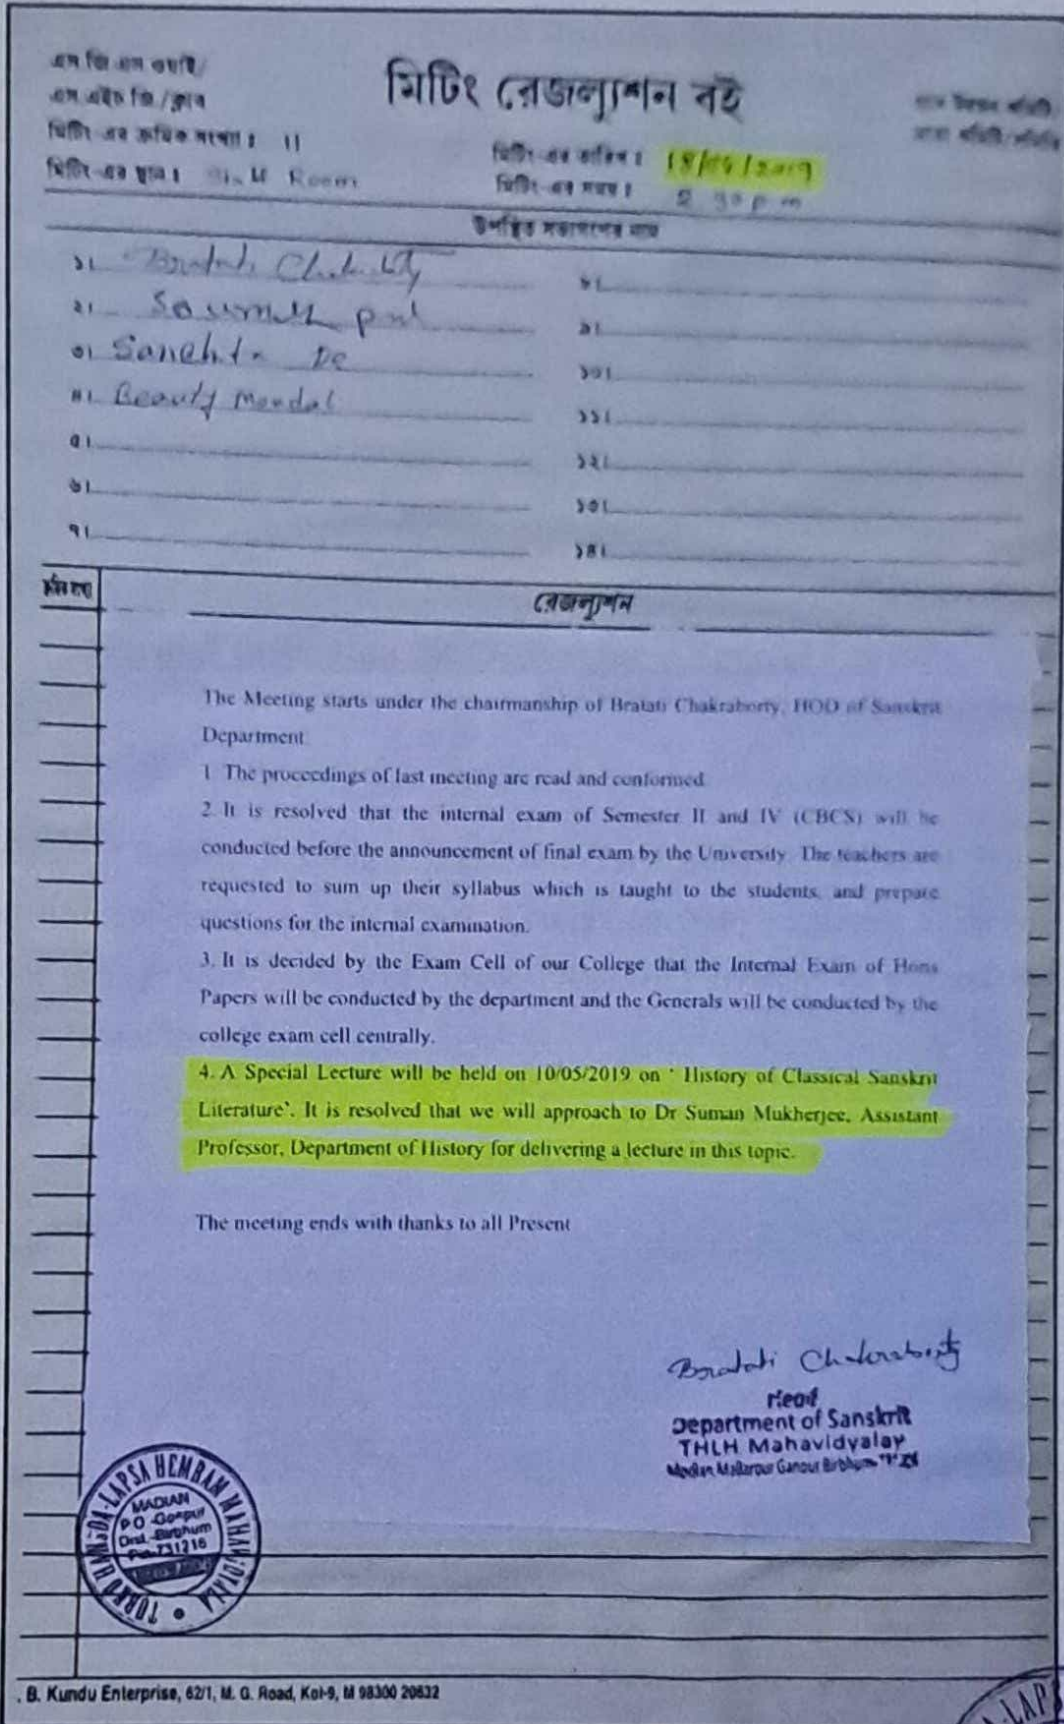 এস জি এস ওয়াই/
এস এইচ জি/ক্লাব
মিটিং রেজল্যুশন বই
মিটিং-এর ক্রমিক সংখ্যা ঃ 11
মিটিং-এর তারিখ ঃ 18/ /2019
মিটিং-এর স্থান ঃ Room
মিটিং-এর সময় ঃ p.m
উপস্থিত সভ্যগণের নাম
১। Bratati Chakraborty
৮।
২।
৯।
৩। Sanchita De
১০।
৪। Beauty Mondal
১১।
৫।
১২।
৬।
১৩।
৭।
১৪।
রেজল্যুশন
The Meeting starts under the chairmanship of Bratati Chakraborty, HOD of Sanskrit
Department
1 The proceedings of last meeting are read and conformed
2. It is resolved that the internal exam of Semester II and IV (CBCS) will be
conducted before the announcement of final exam by the University. The teachers are
requested to sum up their syllabus which is taught to the students, and prepare
questions for the internal examination.
3. It is decided by the Exam Cell of our College that the Internal Exam of Hons
Papers will be conducted by the department and the Generals will be conducted by the
college exam cell centrally.
4. A Special Lecture will be held on 10/05/2019 on ' History of Classical Sanskrit
Literature'. It is resolved that we will approach to Dr Suman Mukherjee, Assistant
Professor, Department of History for delivering a lecture in this topic.
The meeting ends with thanks to all Present
Bratati Chakraborty
Head
Department of Sanskrit
THLH Mahavidyalay
Madian Mallarpur Ganpur Birbhum
TURKU HANSDA-LAPSA HEMRAM MAHAVIDYALAY
MADIAN
P.O-Ganpur
Dist.-Birbhum
Pin-731216
. B. Kundu Enterprise, 62/1, M. G. Road, Kol-9, M 98300 20632
A-LAPS